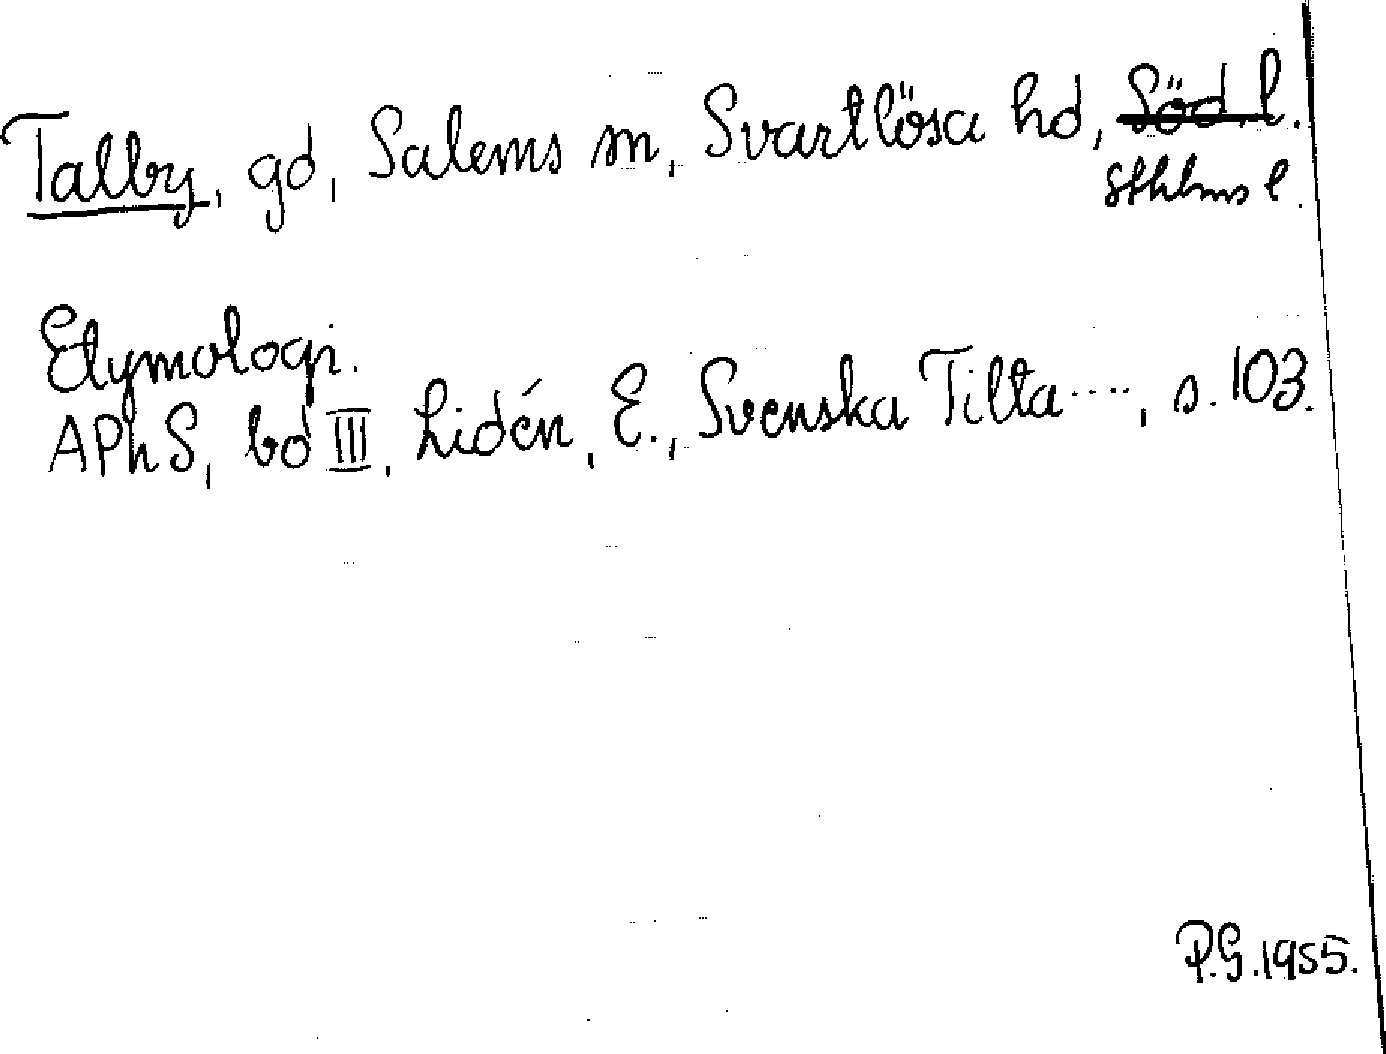 Talby, gd, Salems sn, Svartlösa hd, Söd. l.
Sthlms l.
Etymologi.
APhS, bd III, Lidén, E., Svenska Tilta...., s. 103.
P.G. 1955.